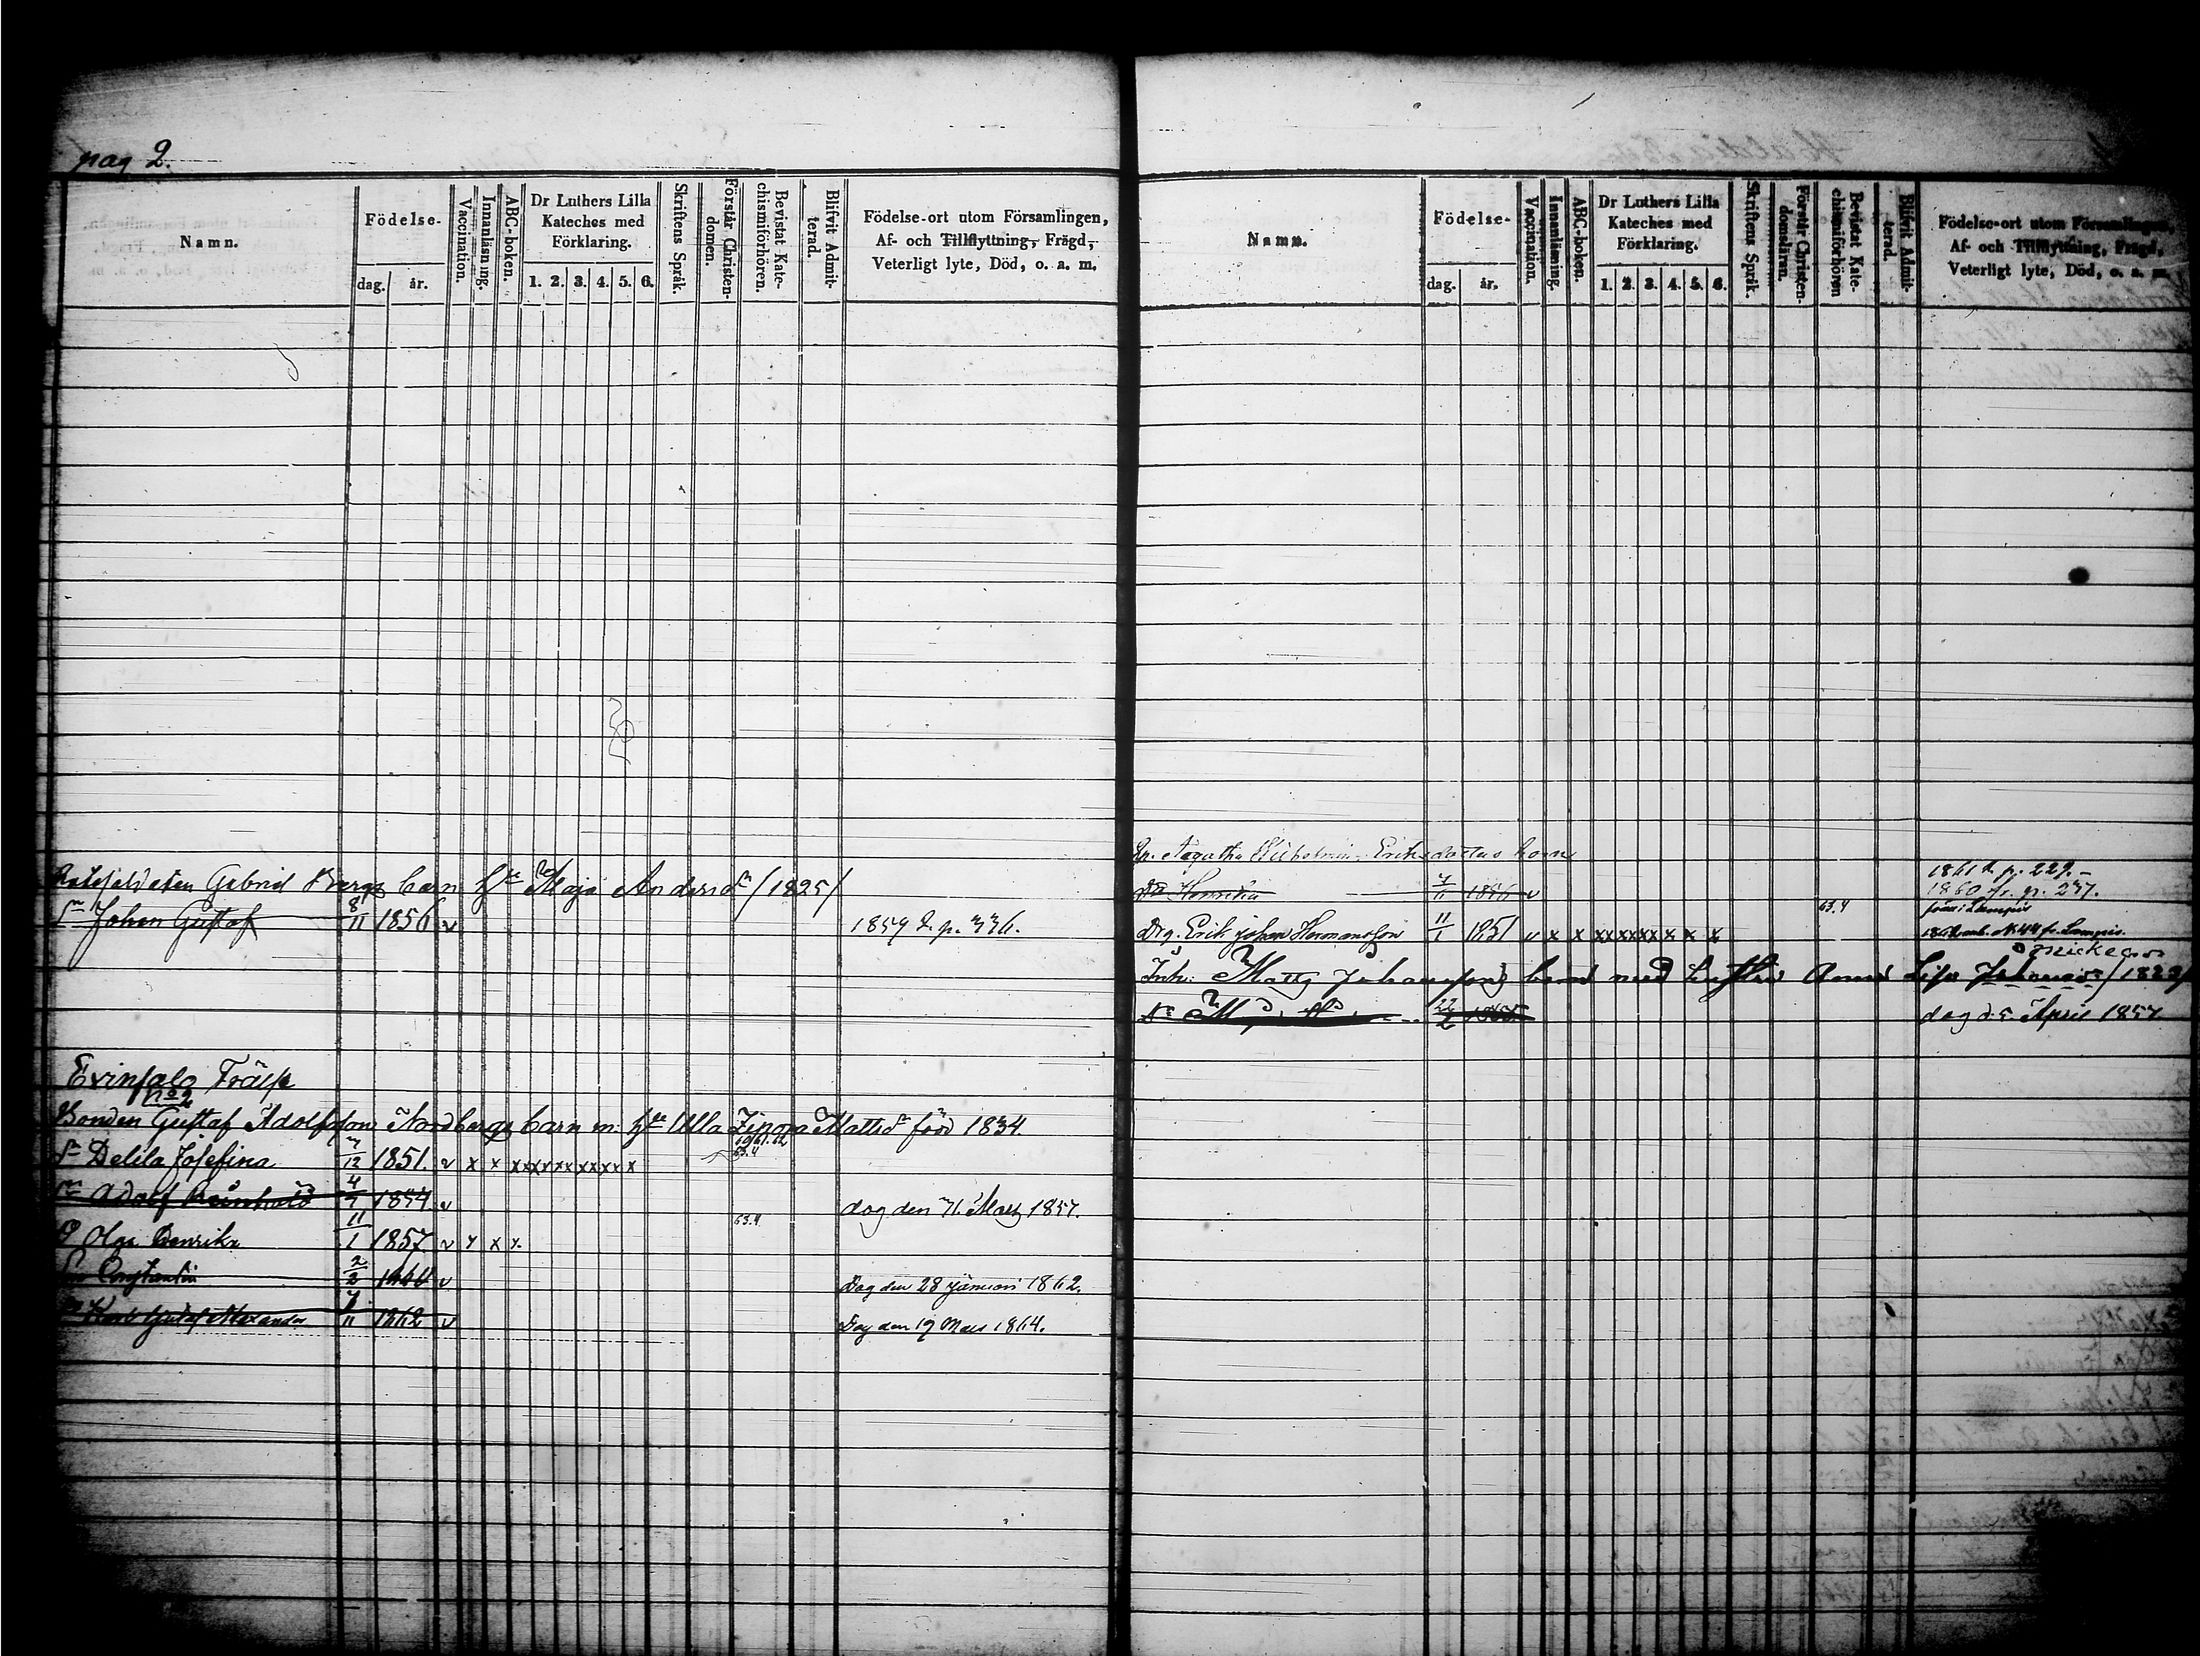 pag 2.
Namn.
Födelse-
dag. år.
Vaccination.
Innanläsning.
ABC-boken.
Dr Luthers Lilla
Kateches med
Förklaring.
1. 2. 3. 4. 5. 6.
Skriftens Språk.
Förstår Christen-
domen.
Bevistat Kate-
chismiförhören.
Blifvit Admit-
terad.
Födelse-ort utom Församlingen,
Af- och Tillflyttning, Frägd,
Veterligt lyte, Död, o. a. m.
Gabriel Bergs barn hu Maja Andersdr /1825/
Sn Johan Gustaf 8/11 1856 v 1859 t. p. 336.
Evinsalo Träsk
no 2
Bonden Gustaf Adolfsson Nordbergs barn m: hu Ulla Zipora Mattsdr född 1834.
Delila Josefina 7/12 1851. v x x x x x x x x x x x 63.4
Sn Adolf Reinhold 4/7 1854 v dog den 31. Mars 1857.
D Olga Henrika 11/1 1857 v x x x 63.4
Sn Constantin 2/2 v Dog den 28 januari 1862.
Gustaf Alexander 7/11 1862 v Dog den 19 Mars 1864.
Namn.
Födelse-
dag. år.
Vaccination.
Innanläsning.
ABC-boken.
Dr Luthers Lilla
Kateches med
Förklaring.
1. 2. 3. 4. 5. 6.
Skriftens Språk.
Förstår Christen-
domsläran.
Bevistat Kate-
chismiförhören
Blifvit Admit-
terad.
Födelse-ort utom Församlingen,
Af- och Tillflyttning, Frägd,
Veterligt lyte, Död, o. a. m.
Agatha Eriksdotters barn
1861 t. p. 229.
Henrika 7/11 1856 v 1860 fr. p. 237.
Drg. Erik Johan Hermansson 11/1 1851 v x x x x x x x x x x x 63.4 fr. Lampis.
Inh: Matts Johanssons barn med hustru Anna Lisa /1822/
22/2 dog d. 5 April 1857